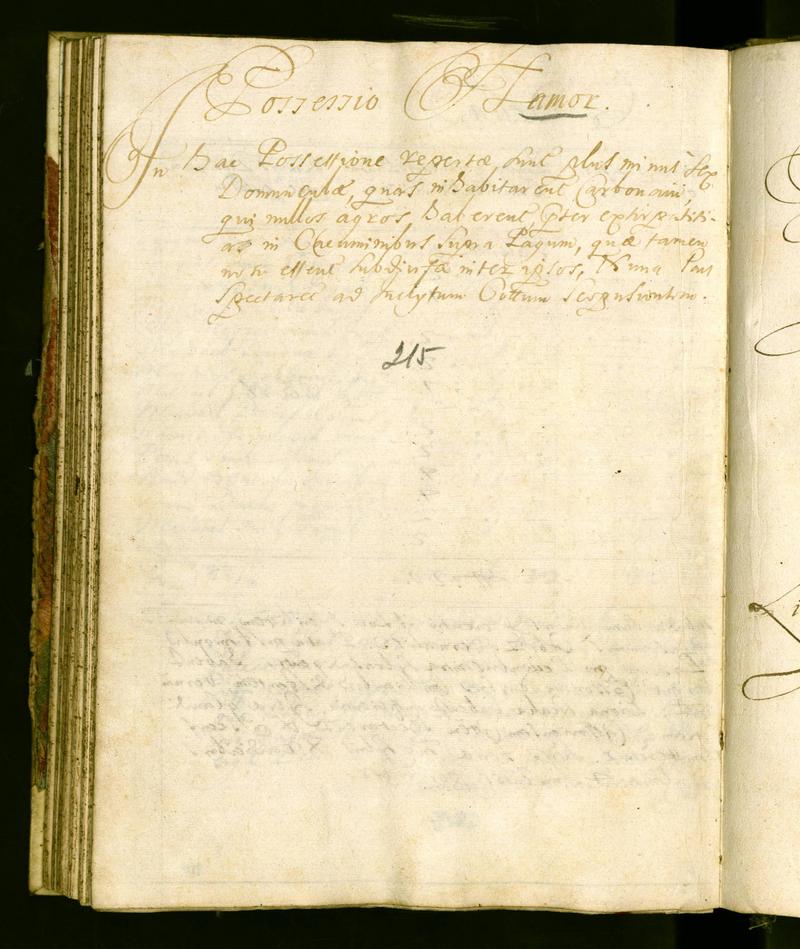 Possessio Hamor.
In hac Possessione repertæ sunt plus minus sex
Domunculæ, quas inhabitarent Carbonarii,
qui nullos agros haberent, præter exhirpatiti-
as in Cacuminibus supra Pagum, quæ tamen
non essent subdivisæ inter ipsos, Nunc
Spectaret ad Inclytum Cottum
215